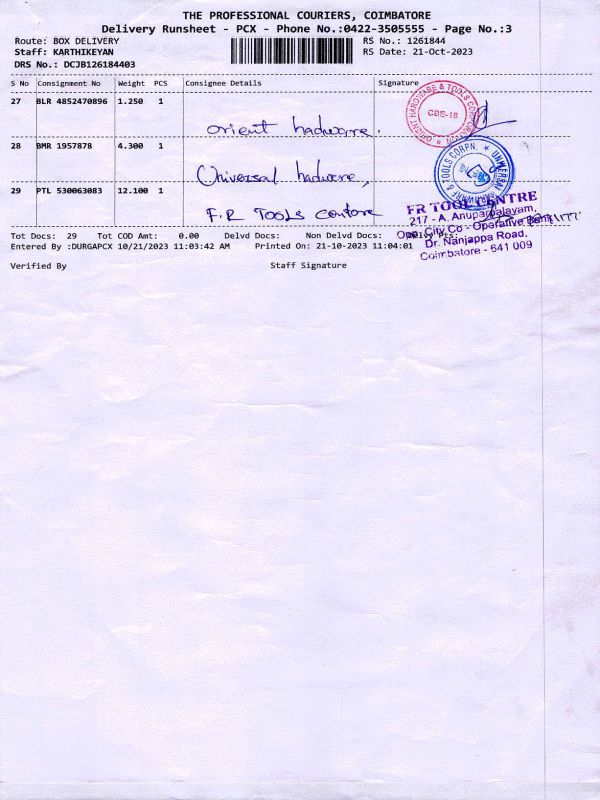 THE PROFESSIONAL COURIERS, COIMBATORE
Delivery Runsheet - PCX - Phone No.:0422-3505555 - Page No.:3
Route: BOX DELIVERY RS No.: 1261844
Staff: KARTHIKEYAN RS Date: 21-Oct-2023
DRS No.: DCJB126184403
S No Consignment No Weight PCS Consignee Details Signature
27 BLR 4852470896 1.250 1
orient hadware.
ORIENT HARDWARE & TOOLS CORPORATION
CBE-18
28 BMR 1957878 4.300 1
Universal hadware,
UNIVERSAL HARDWARE & TOOLS CORPN.
29 PTL 530063083 12.100 1
F.R Tools centore
FR TOOL CENTRE
217 - A, Anuparpalayam,
Opp. City Co - Operative Bank
Dr. Nanjappa Road,
Coimbatore - 641 009
Tot Docs: 29 Tot COD Amt: 0.00 Delvd Docs: Non Delvd Docs: Delvd Pts:
Entered By :DURGAPCX 10/21/2023 11:03:42 AM Printed On: 21-10-2023 11:04:01
Verified By Staff Signature